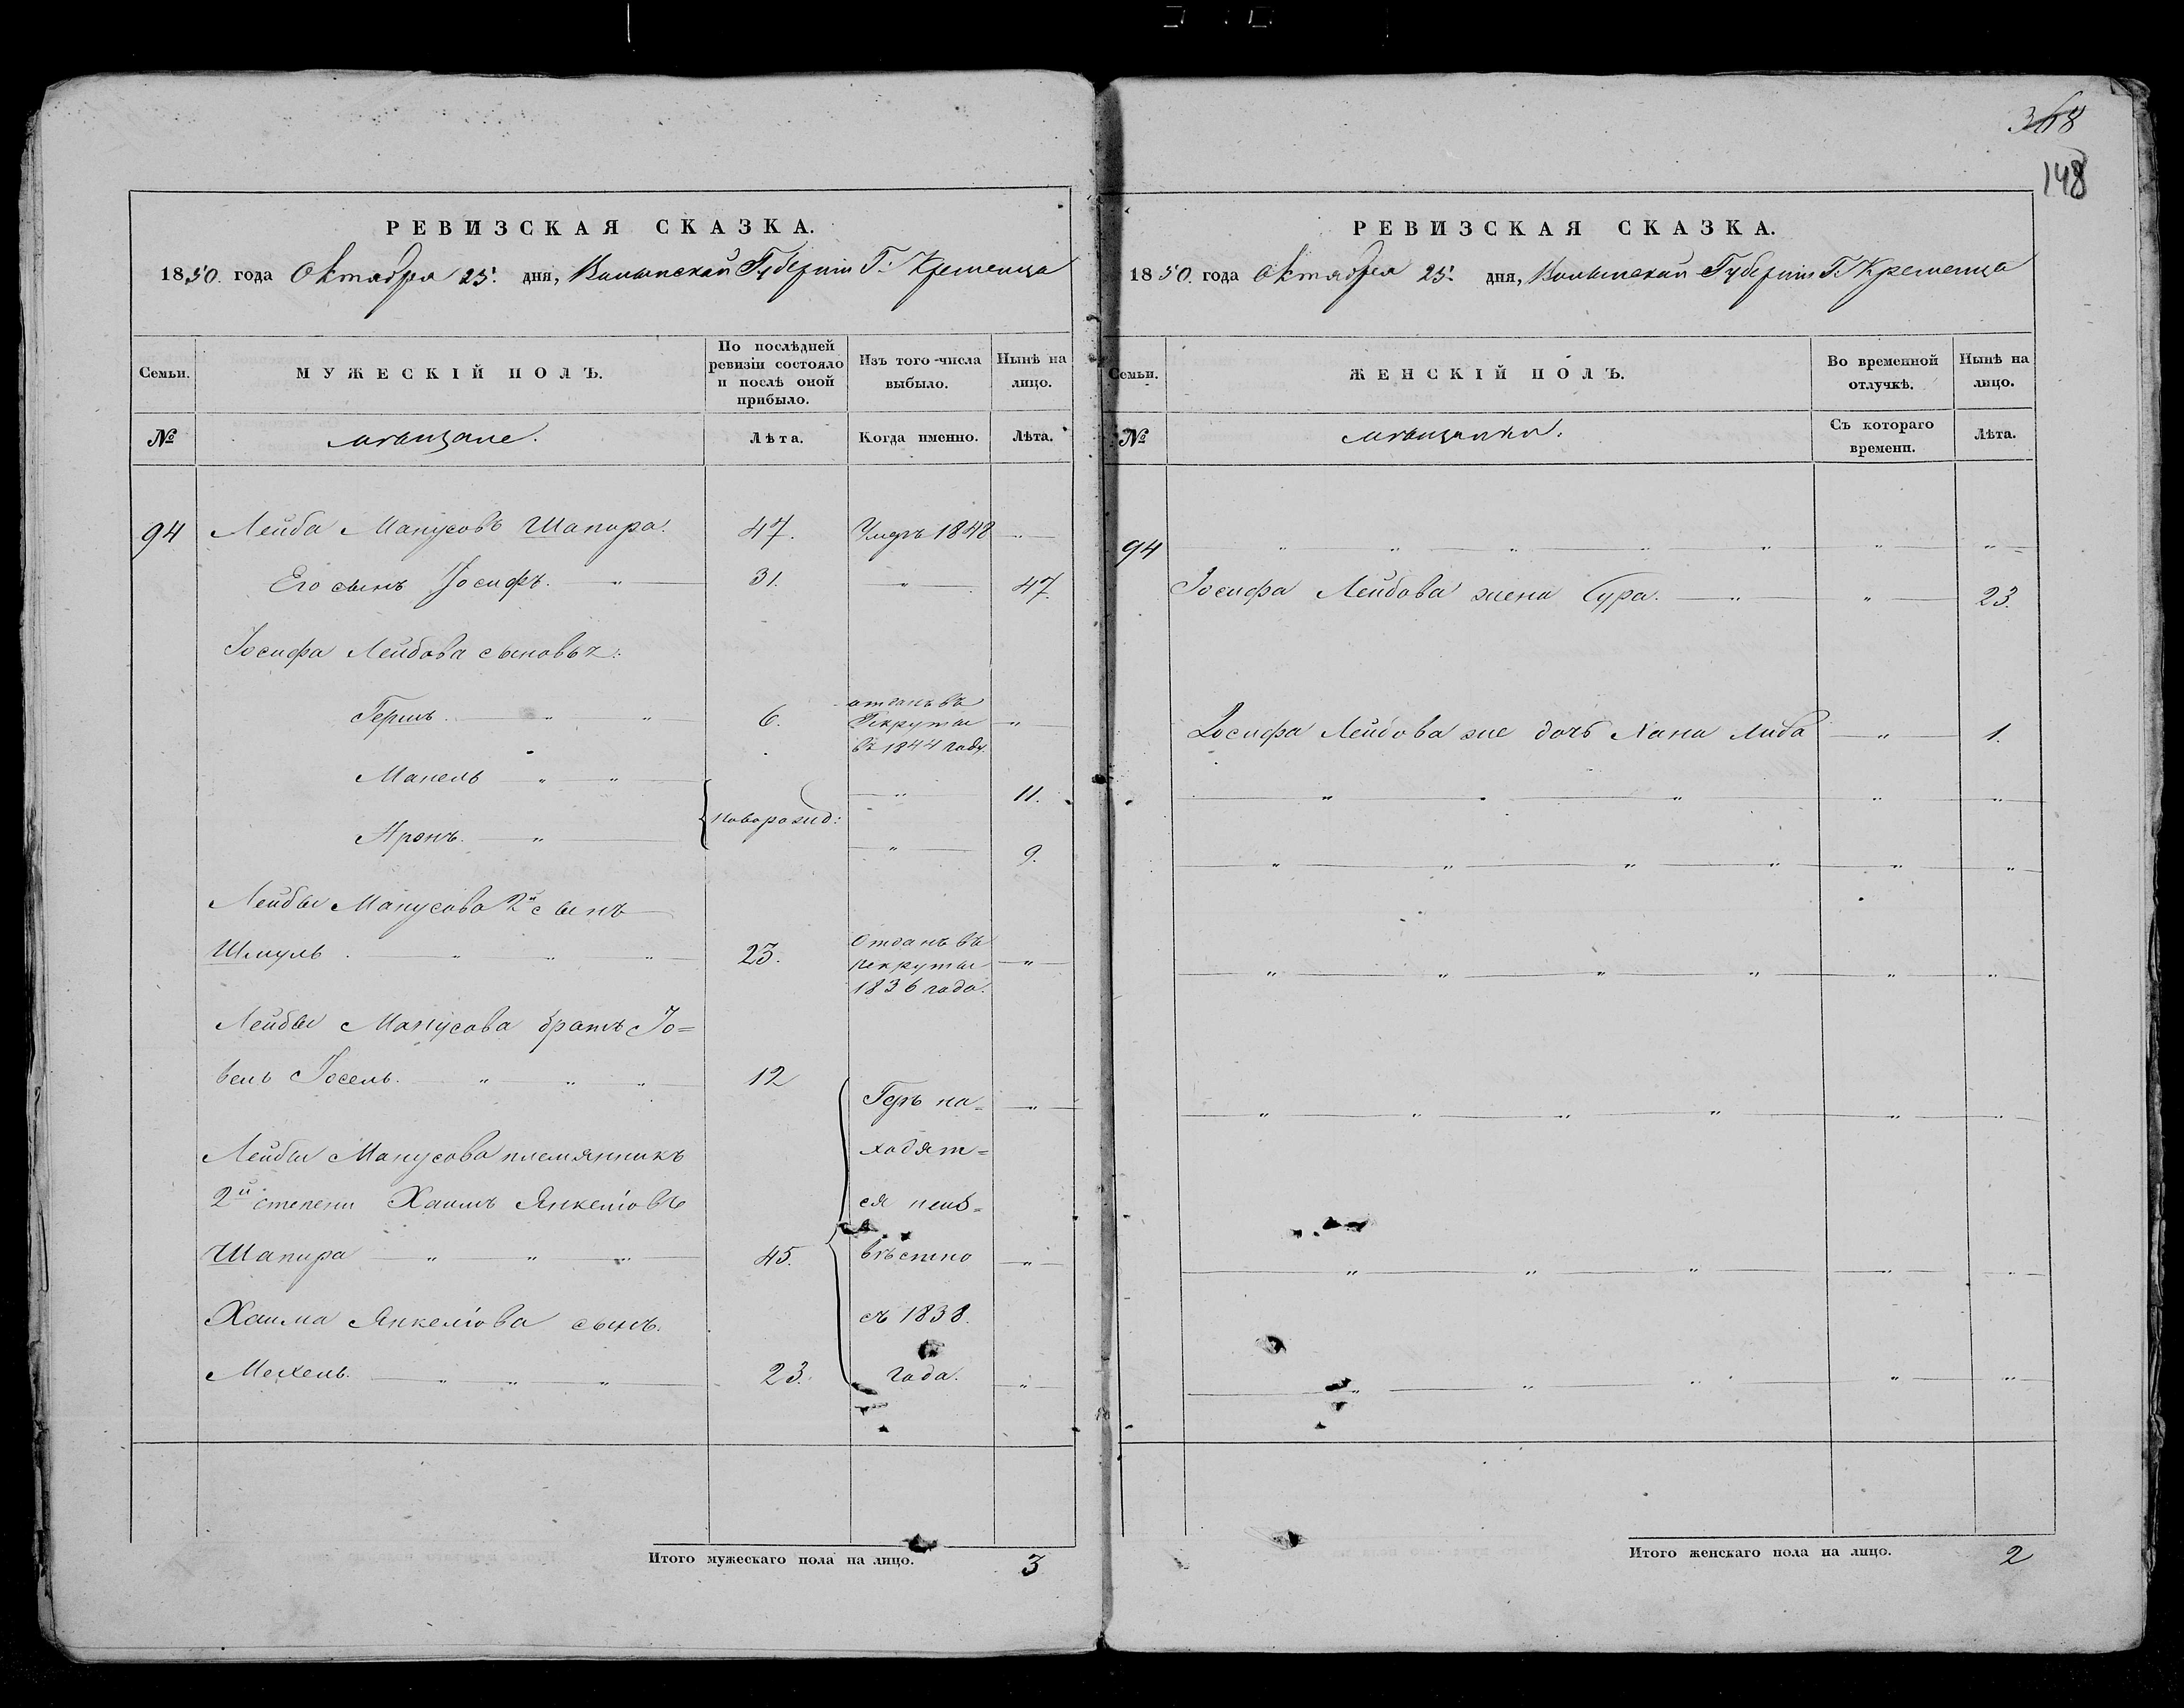 368
148
РЕВИЗСКАЯ СКАЗКА.
1850. года Октября 25. дня, Волынской Губерніи Г. Кременца
Семьи.
МУЖЕСКІЙ ПОЛЪ.
По послѣдней ревизіи состояло и послѣ оной прибыло.
Изъ того числа выбыло.
Нынѣ на лицо.
№
мѣщане.
Лѣта.
Когда именно.
Лѣта.
94 Лейба Манусовъ Шапира. 47. Умеръ 1848 "
Его сынъ Іосифъ. " 31. " 47.
Іосифа Лейбова сыновья:
Гершъ. " " 6. отданъ въ
Рекруты "
въ 1844 году.
Манель " " " 11.
новорожд:
Аронъ. " " 9.
Лейбы Манусова 2й сынъ
Шмуль . " " " 23. Отданъ въ
рекруты "
1836 года.
Лейбы Манусова братъ Іо=
вель Іосель. " " " 12
Геръ на= "
Лейбы Манусова племянникъ ходят=
2й степени Хаимъ Янкеліовъ ся неиз=
Шапира " " " 45. вѣстно "
Хаима Янкеліова сынъ. съ 1838.
Мехель. " " " 23. года. "
Итого мужескаго пола на лицо. 3
РЕВИЗСКАЯ СКАЗКА.
1850. года Октября 25. дня, Волынской Губерніи Г. Кременца
Семьи.
ЖЕНСКІЙ ПОЛЪ.
Во временной отлучкѣ.
Нынѣ на лицо.
№
мѣщанки.
Съ котораго времени.
Лѣта.
94 " " " " " " "
Іосифа Лейбова жена Сура. " " 23.
Іосифа Лейбова же дочь Хана Либа " 1.
" " " " "
" " " " " "
" " " " " "
" " " " " "
" " " " "
" " " " "
Итого женскаго пола на лицо. 2